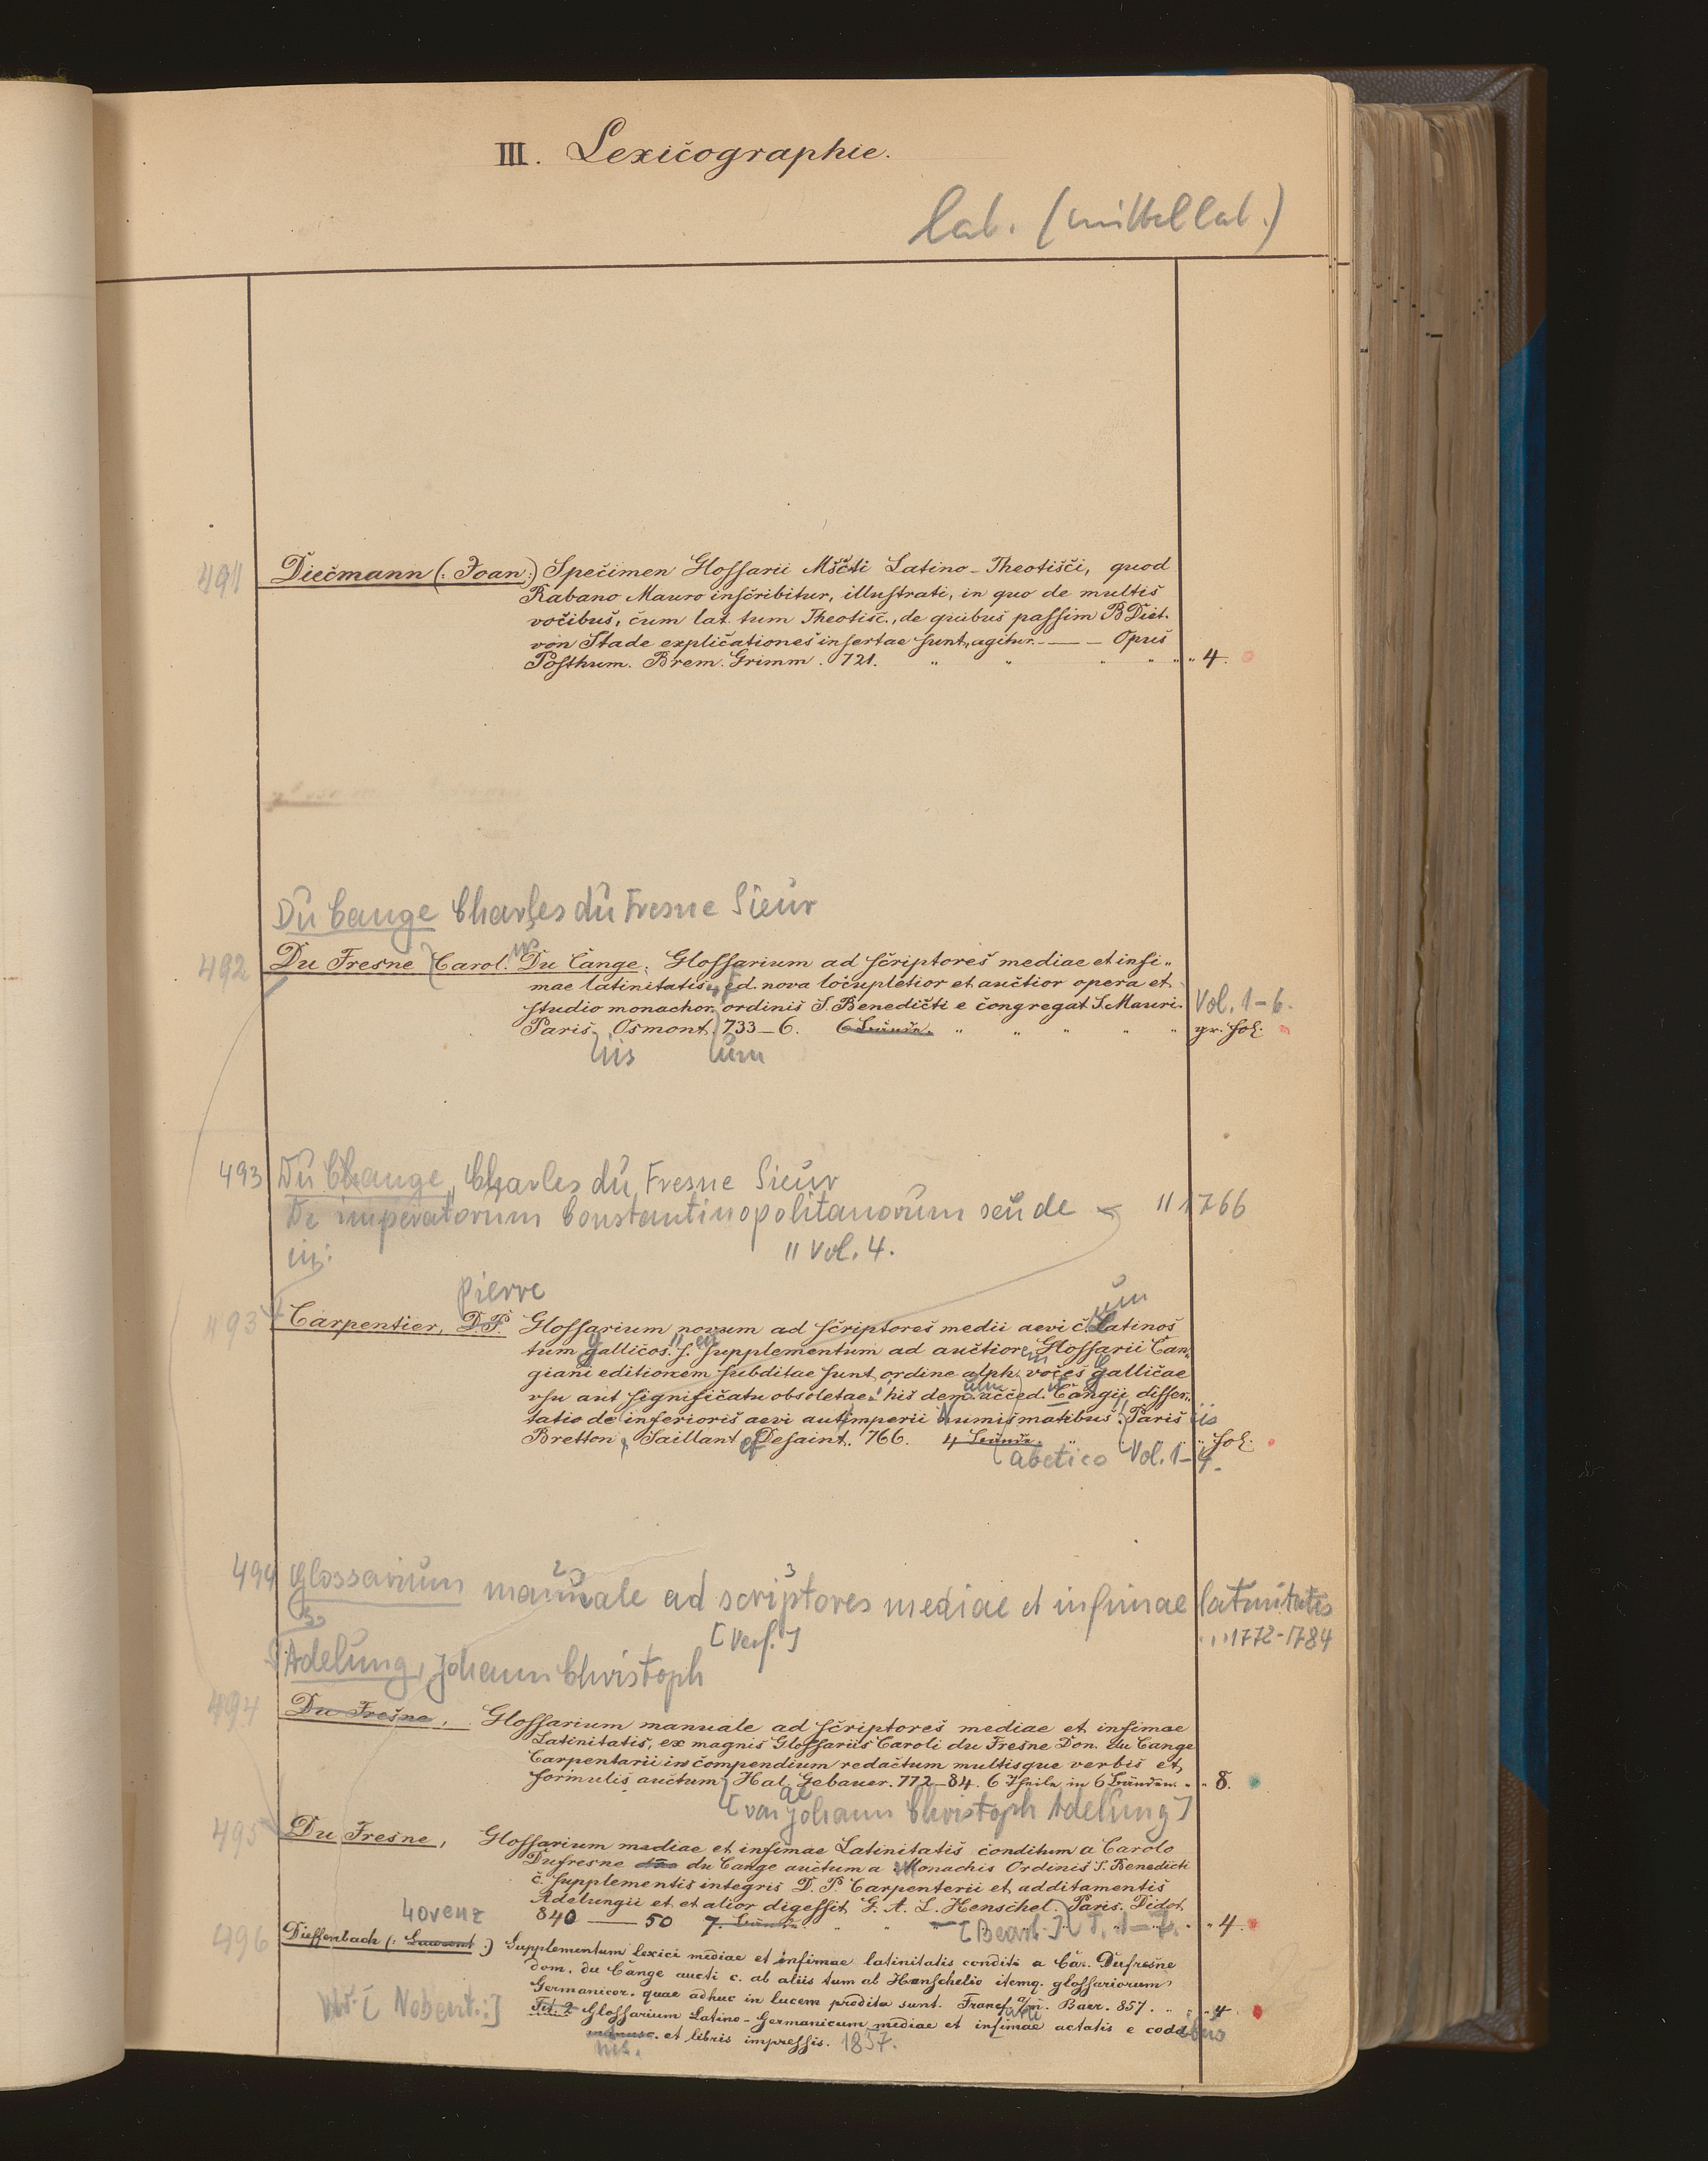 III. Lexicographie.
lat. (mittellat.)
491 Diecmann (: Joan:) Specimen Glossarii Mscti Latino-Theotisci, quod
Rabano Mauro inscribitur, illustrati, in quo de multis
vocibus, cum lat. tum Theotisc., de quibus passim B Diet.
von Stade explicationes insertae sunt, agitur. — — Opus
Posthum. Brem. Grimm. 721. " " " " " " 4.
Du Cange Charles du Fresne Sieur
492 Du Fresne Carol. Du Cange, Glossarium ad scriptores mediae et infi-
mae latinitatis, ed. nova locupletior et auctior opera et
studio monachor. ordinis S. Benedicti e congregat. S. Mauri. Vol. 1-6.
Paris, Osmont. 733-6. 6 Bände. " " " " " gr. fol.
iis um
493 Du Cange, Charles du Fresne Sieur
De imperatorum Constantinopolitanorum seu de " 1766
in: " Vol. 4.
Pierre
493 Carpentier, D.P. Glossarium novum ad scriptores medii aevi c. Latinos
um
tum gallicos. s. supplementum ad auctiorem Glossarii Can-
giani editionem subditae sunt ordine alph. voces gallicae
usu aut significatu obsoletae. his dem. acced. Cangii disser-
tatio de inferioris aevi aut imperii numismatibus. Paris iis
Bretton, Saillant et Desaint. 766. 4 Bände. " " fol.
abetico Vol. 1-4.
494 Glossarium manuale ad scriptores mediae et infimae latinitatis
[Verf.] 1772-1784
Adelung, Johann Christoph
494 Du Fresne, Glossarium manuale ad scriptores mediae et infimae
Latinitatis, ex magnis Glossariis Caroli du Fresne Don. du Cange
Carpentarii in compendium redactum multisque verbis et
formulis auctum, Hal. Gebauer. 772-84. 6 Theile in 6 Bänden. " " 8.
ae
[von Johann Christoph Adelung]
495 Du Fresne, Glossarium mediae et infimae Latinitatis conditum a Carolo
Dufresne du Cange auctum a Monachis Ordinis S. Benedicti
c. supplementis integris D. P. Carpenterii et additamentis
Adelungii et et alior digessit G. A. L. Henschel. Paris. Didot
840 — 50 7. Bände. " " [Bearb.] T. 1-7. " " 4.
Lorenz
496 Dieffenbach (: Laurent :) Supplementum lexici mediae et infimae latinitatis conditi a Car. Dufresne
dom. du Cange aucti c. ab aliis tum ab Henschelio itemq. glossariorum
Germanicor. quae adhuc in lucem prodita sunt. Francf. a/m. Baer. 857. " " " 4.
[Nebent.:] Tit. 2 Glossarium Latino-Germanicum mediae et infimae aetatis e codd
manusc. et libris impressis. 1857.